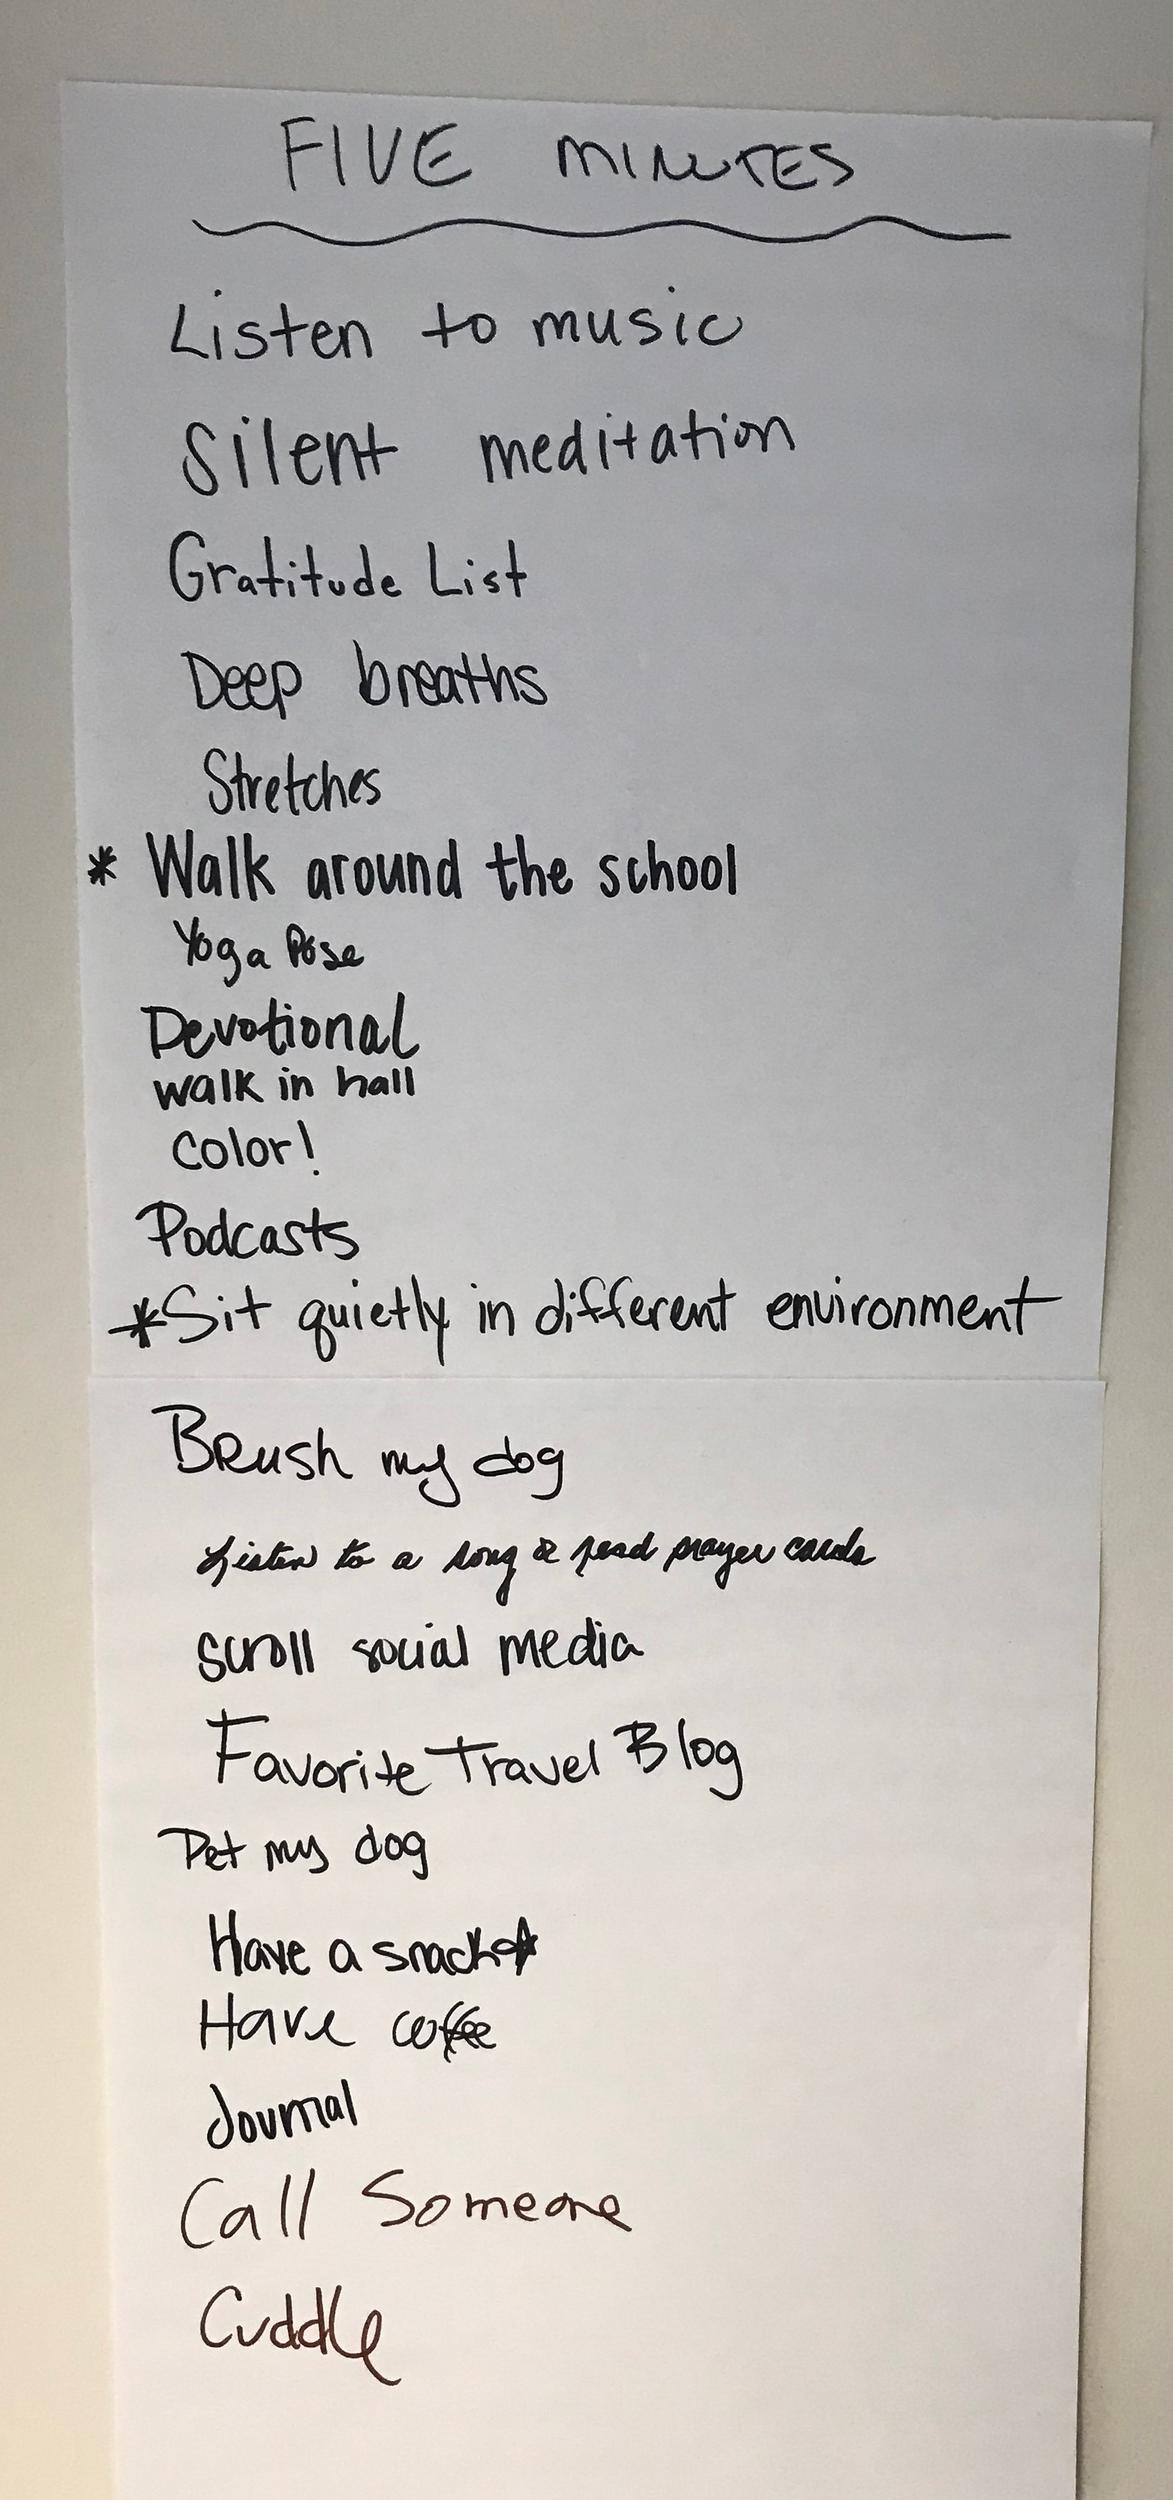 FIVE MINUTES
Listen to music
Silent meditation
Gratitude List
Deep breaths
Stretches
* Walk around the school
Yoga Pose
Devotional
walk in hall
Color!
Podcasts
*Sit quietly in different environment
Brush my dog
Listen to a song & read prayer cards
scroll social media
Favorite Travel Blog
Pet my dog
Have a snack☆
Have coffee
Journal
Call Someone
Cuddle